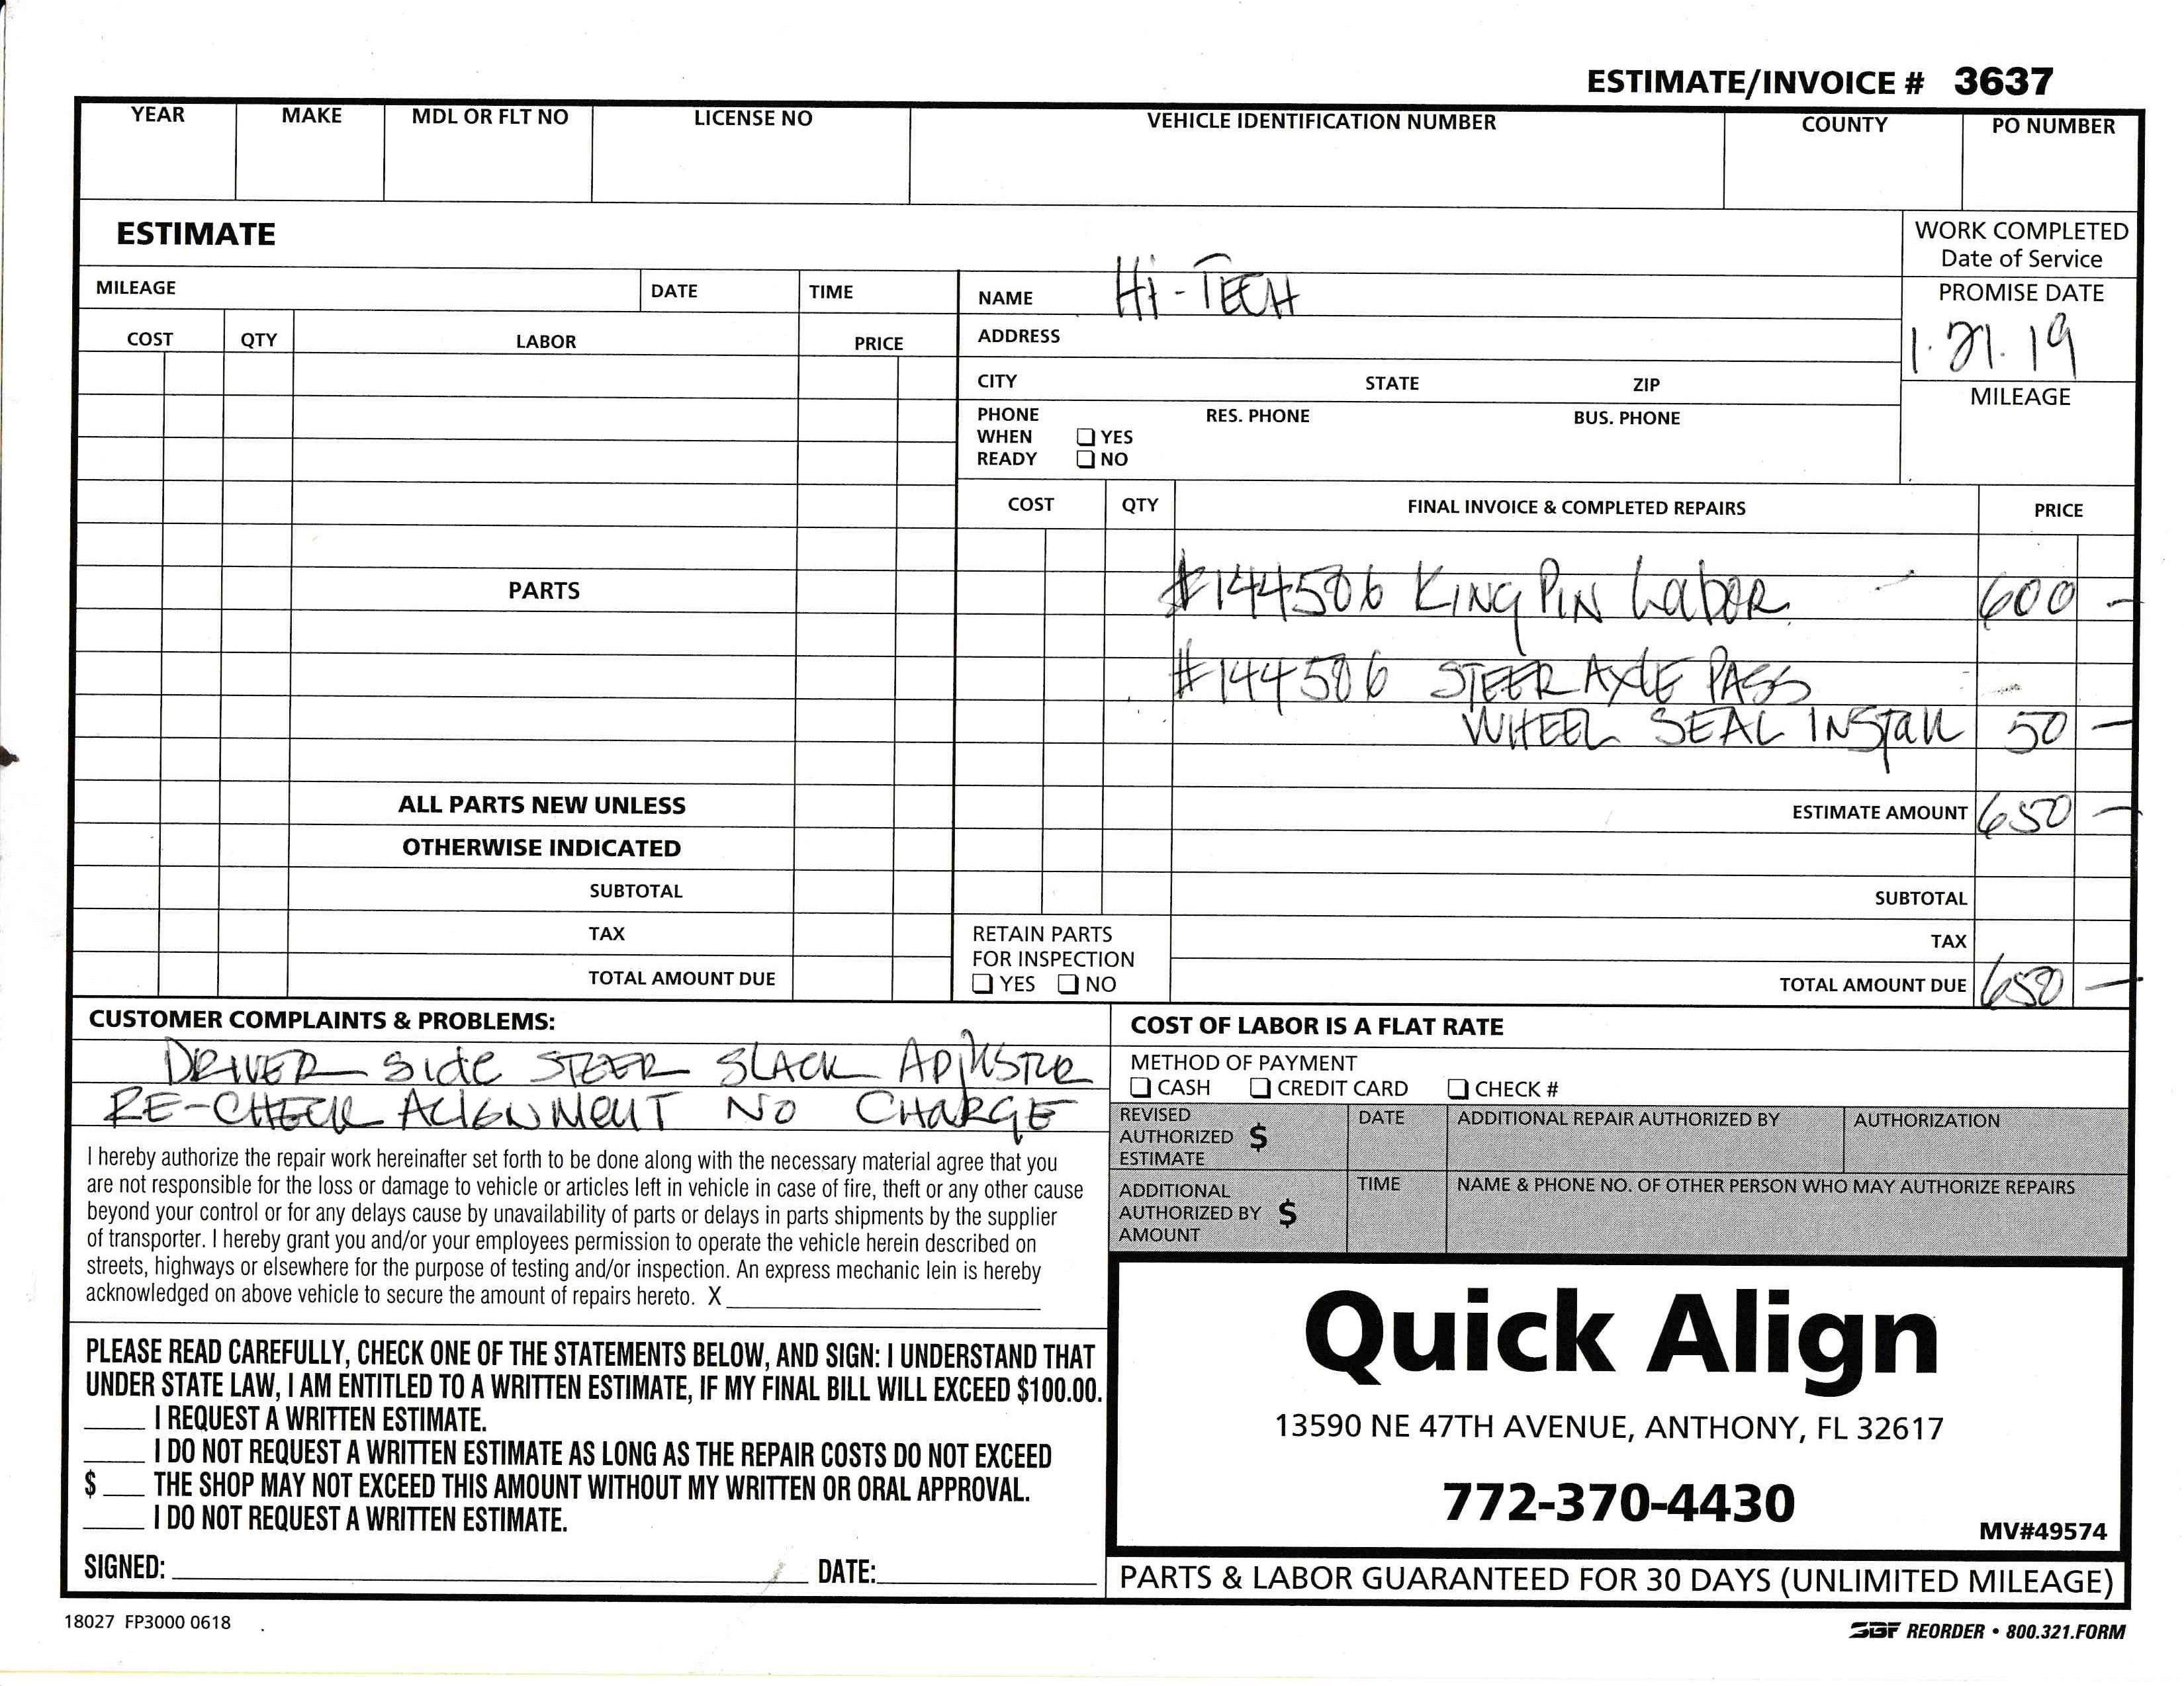 ESTIMATE/INVOICE # 3637
YEAR MAKE MDL OR FLT NO LICENSE NO VEHICLE IDENTIFICATION NUMBER COUNTY PO NUMBER
ESTIMATE
WORK COMPLETED
Date of Service
MILEAGE DATE TIME
NAME Hi-TECH
PROMISE DATE
1.21.19
COST QTY LABOR PRICE
ADDRESS
CITY STATE ZIP
MILEAGE
PHONE WHEN READY
☐ YES
☐ NO
RES. PHONE BUS. PHONE
COST QTY FINAL INVOICE & COMPLETED REPAIRS PRICE
PARTS
#144506 KING PIN LaboR - 600 -
#144506 STEER AXLE PASS
WHEEL SEAL INStall 50 -
ALL PARTS NEW UNLESS
OTHERWISE INDICATED
ESTIMATE AMOUNT 650 -
SUBTOTAL
TAX
TOTAL AMOUNT DUE
RETAIN PARTS
FOR INSPECTION
☐ YES ☐ NO
SUBTOTAL
TAX
TOTAL AMOUNT DUE 650 -
CUSTOMER COMPLAINTS & PROBLEMS:
DRIVER Side STEER SLACK ADjUSTR
RE-CHECK ALIGNMeNT NO CHARGE
I hereby authorize the repair work hereinafter set forth to be done along with the necessary material agree that you
are not responsible for the loss or damage to vehicle or articles left in vehicle in case of fire, theft or any other cause
beyond your control or for any delays cause by unavailability of parts or delays in parts shipments by the supplier
of transporter. I hereby grant you and/or your employees permission to operate the vehicle herein described on
streets, highways or elsewhere for the purpose of testing and/or inspection. An express mechanic lein is hereby
acknowledged on above vehicle to secure the amount of repairs hereto. X
PLEASE READ CAREFULLY, CHECK ONE OF THE STATEMENTS BELOW, AND SIGN: I UNDERSTAND THAT
UNDER STATE LAW, I AM ENTITLED TO A WRITTEN ESTIMATE, IF MY FINAL BILL WILL EXCEED $100.00.
I REQUEST A WRITTEN ESTIMATE.
I DO NOT REQUEST A WRITTEN ESTIMATE AS LONG AS THE REPAIR COSTS DO NOT EXCEED
$ THE SHOP MAY NOT EXCEED THIS AMOUNT WITHOUT MY WRITTEN OR ORAL APPROVAL.
I DO NOT REQUEST A WRITTEN ESTIMATE.
SIGNED: DATE:
COST OF LABOR IS A FLAT RATE
METHOD OF PAYMENT
☐ CASH ☐ CREDIT CARD ☐ CHECK #
REVISED
AUTHORIZED $
ESTIMATE
DATE ADDITIONAL REPAIR AUTHORIZED BY AUTHORIZATION
ADDITIONAL
AUTHORIZED BY $
AMOUNT
TIME NAME & PHONE NO. OF OTHER PERSON WHO MAY AUTHORIZE REPAIRS
Quick Align
13590 NE 47TH AVENUE, ANTHONY, FL 32617
772-370-4430
MV#49574
PARTS & LABOR GUARANTEED FOR 30 DAYS (UNLIMITED MILEAGE)
18027 FP3000 0618
SBF REORDER • 800.321.FORM